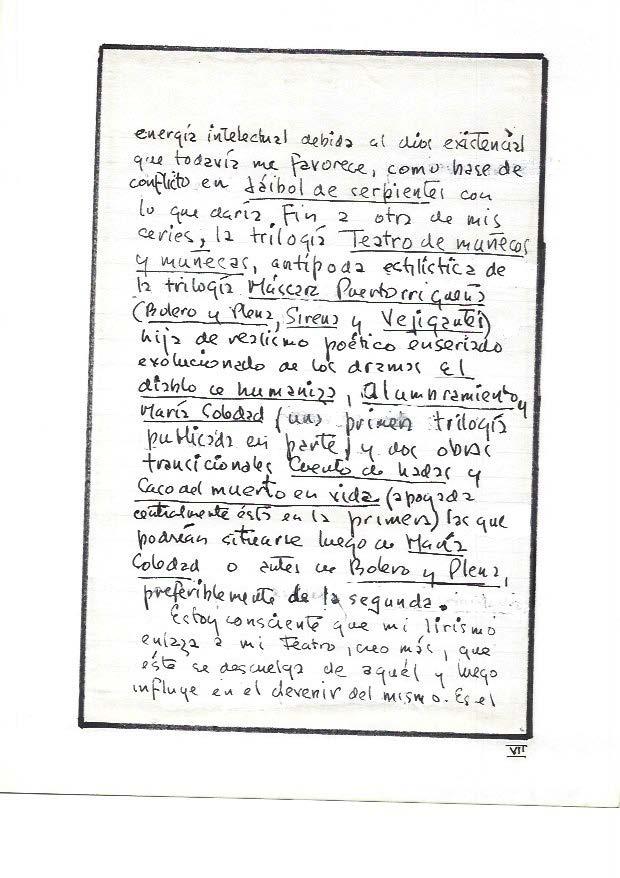 energía intelectual debida al dios existencial
que todavía me favorece, como base de
conflicto en Jáibol de serpientes con
lo que daría fin a otra de mis
series, la trilogía Teatro de muñecos
y muñecas, antípoda estilística de
la trilogía Máscara Puertorriqueña
(Bolero y Plena, Sirena y Vejigantes)
hija de realismo poético enseriado
evolucionado de los dramas El
diablo se humaniza, Alumbramiento y
María Soledad (una primera trilogía
publicada en parte) y dos obras
transicionales Cuento de hadas y
Caso del muerto en vida (apoyada
centralmente ésta en la primera) las que
podrían situarse luego de María
Soledad o antes de Bolero y Plena,
preferiblemente de la segunda.
Estoy consciente que mi lirismo
enlaza a mi teatro, creo más, que
éste se descuelga de aquél y luego
influye en el devenir del mismo. Es el
VII